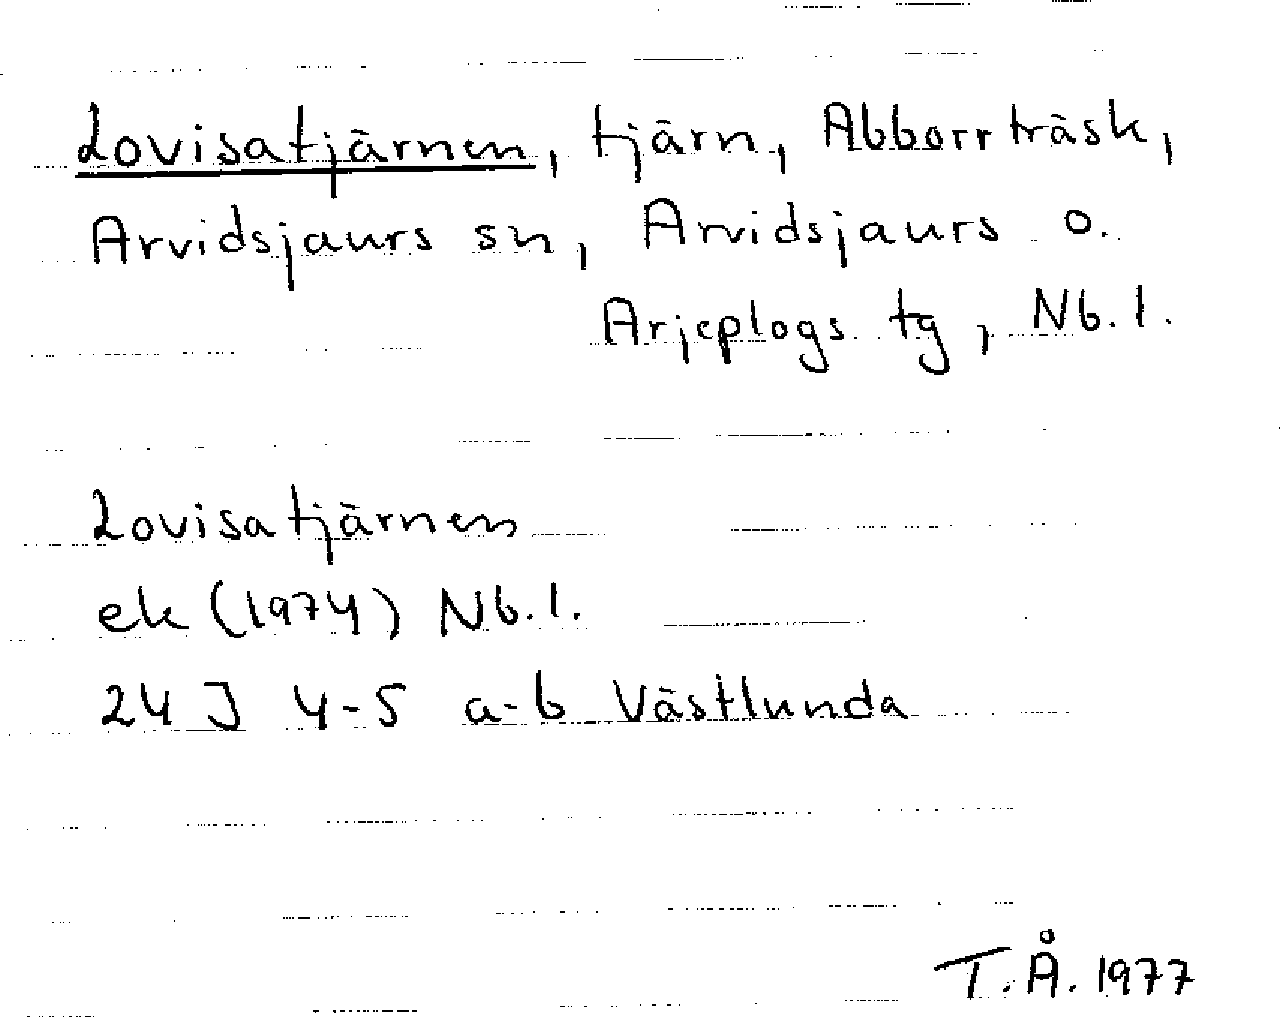 Lovisatjärnen, tjärn, Abborrträsk,
Arvidsjaurs sn, Arvidsjaurs o.
Arjeplogs tg, Nb. l.
Lovisatjärnen
ek (1974) Nb. l.
24 J 4-5 a-b Västlunda
T.Å. 1977